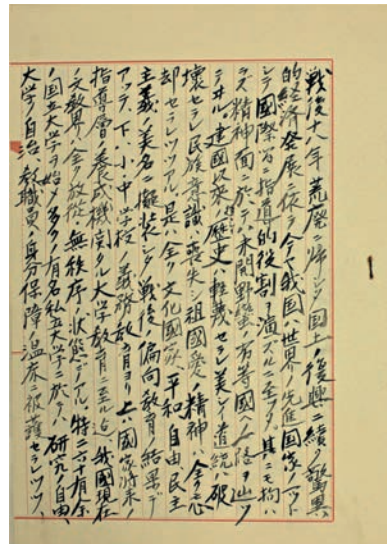 戦後十八年荒廃ニ帰シタ国土ノ復興ニ続ク驚異
的経済発展ニ依テ今ヤ我国ハ世界ノ先進国家ノ一ツト
シテ国際間ニ指導的役割ヲ演ズルニ至ツタ。其ニモ拘ハ
ラズ精神面ニ於テハ未開野蛮ノ劣等國ノ途ヲ辿ツ
テヰル建國以来ノ歴史ハ歪曲セラレ美シイ道統ハ破
壊セラレ民族意識ハ喪失シ祖國愛ノ精神ハ全ク忘
却セラレツツアル。是ハ全ク文化國家、平和、自由、民主
主義ノ美名ニ擬装シタ戦後ノ偏向教育ノ結果デ
アツテ、下ハ小中学校ノ義務教育ヨリ上ハ國家将来ノ
指導層ノ養成機関タル大学教育ニ至ル迄、我國現在
ノ文教界ハ全ク放縦、無秩序ノ状態デアル。特ニ六十有余
ノ国立大学ヲ始メ多クノ有名私立大学ニ於テハ研究ノ自由、
大学ノ自治、教職員ノ身分保障ノ温床ニ被護セラレツツ、